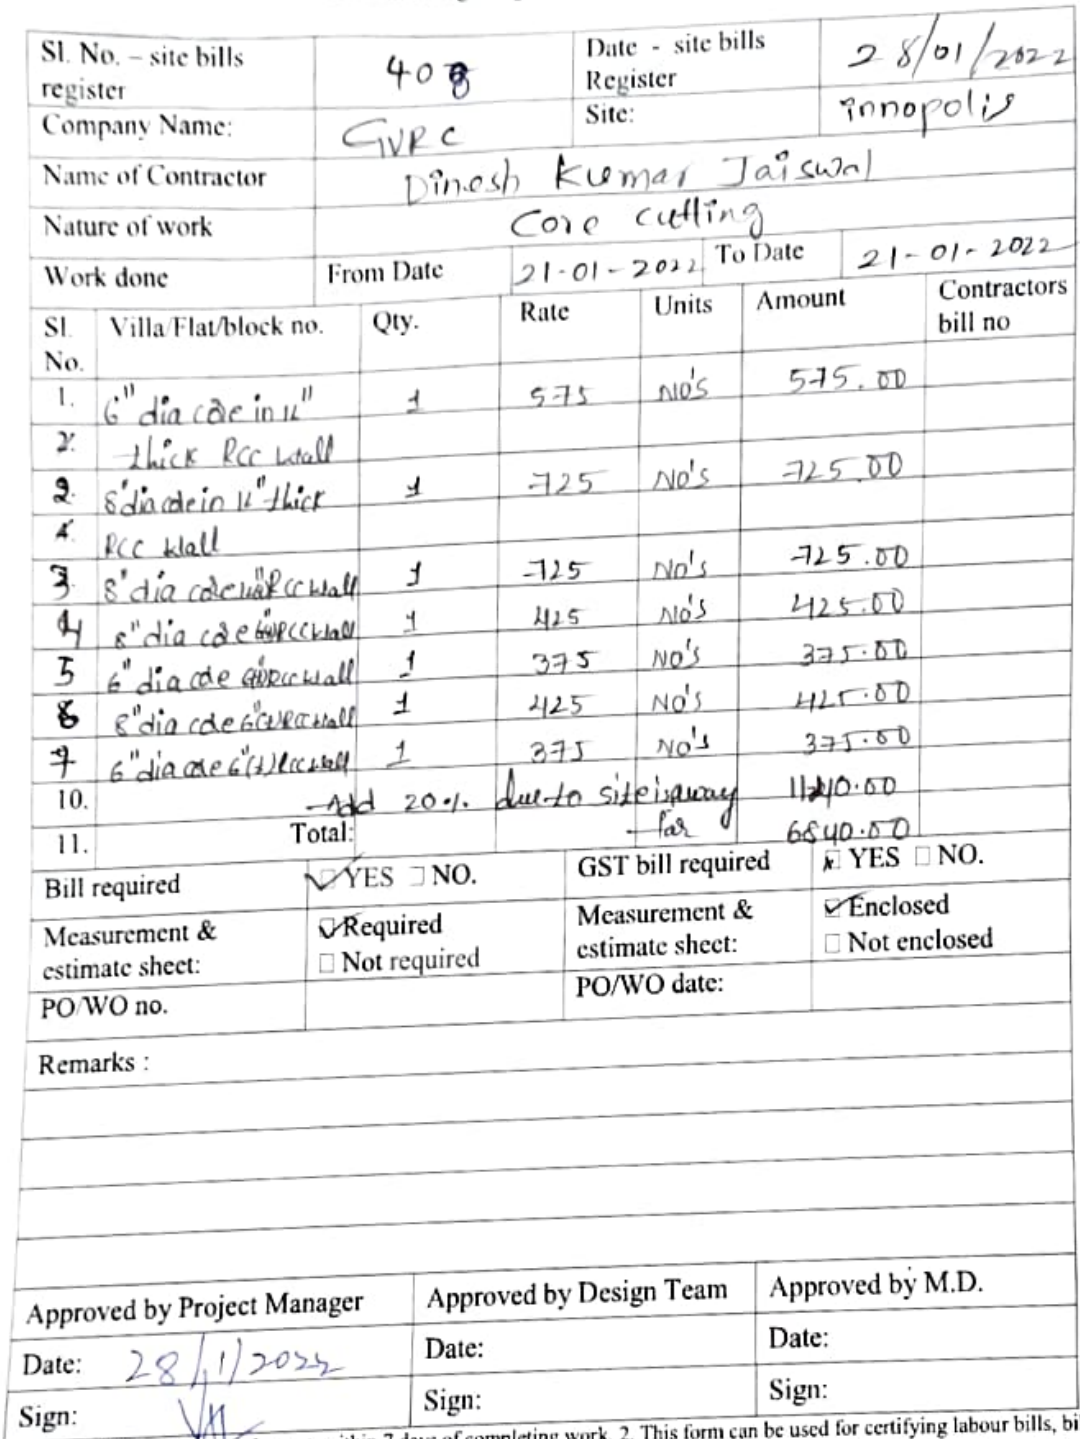 Sl. No. – site bills register 408 Date - site bills Register 28/01/2022
Company Name: GVRC Site: innopolis
Name of Contractor Dinesh Kumar Jaiswal
Nature of work Core cutting
Work done From Date 21-01-2022 To Date 21-01-2022
Sl. No. Villa/Flat/block no. Qty. Rate Units Amount Contractors bill no
1. 6" dia core in 12" 1 575 No's 575.00
2. thick RCC Wall
2. 8" dia core in 12" thick 1 725 No's 725.00
4. RCC Wall
3. 8" dia core RCC Wall 1 725 No's 725.00
4 8" dia core RCC Wall 1 425 No's 425.00
5 6" dia core RCC Wall 1 375 No's 375.00
6 8" dia core 6" RCC Wall 1 425 No's 425.00
7 6" dia core 6" RCC Wall 1 375 No's 375.00
10. Add 20% due to site is away 1140.00
far
11. Total: 6840.00
Bill required YES NO. GST bill required YES NO.
Measurement & estimate sheet: Required Not required Measurement & estimate sheet: Enclosed Not enclosed
PO/WO no. PO/WO date:
Remarks :
Approved by Project Manager Approved by Design Team Approved by M.D.
Date: 28/1/2022 Date: Date:
Sign: Sign: Sign:
7 days of completing work. 2. This form can be used for certifying labour bills,